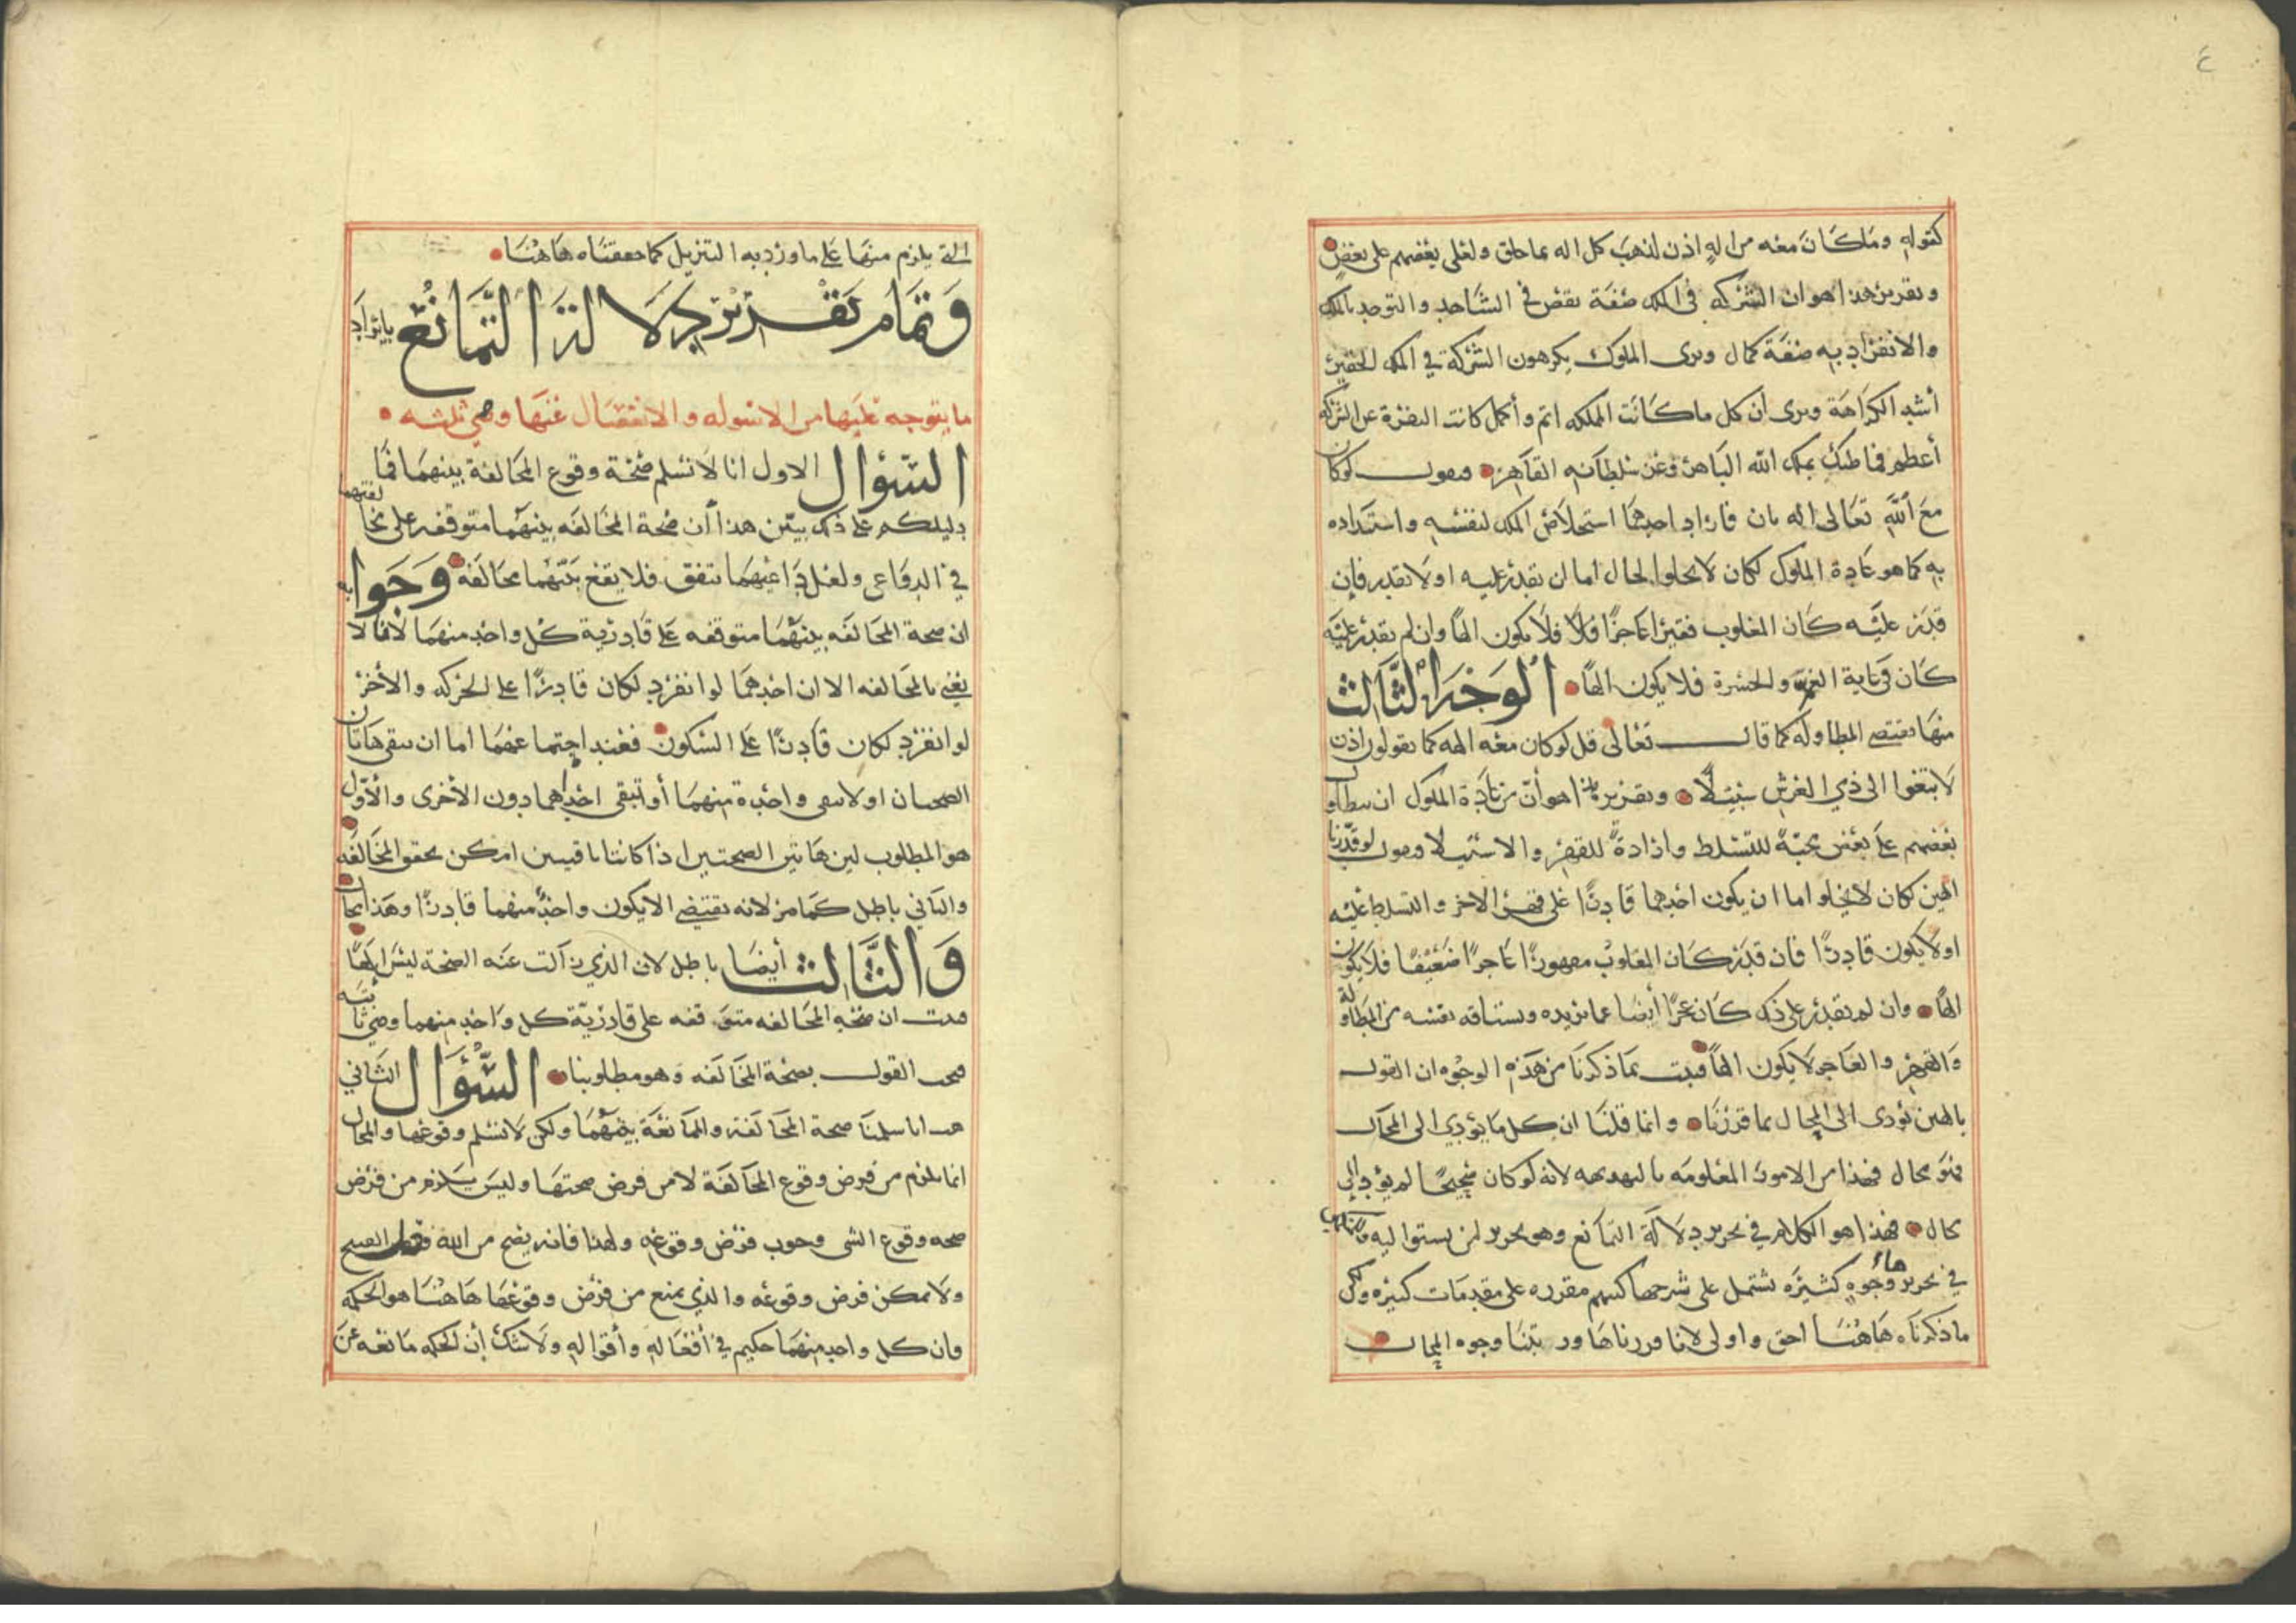 ٤
كقوله وما كان معه من اله اذن لذهب كل اله بما خلق ولعلى بعضهم على بعض
وتقرير هذا هو ان الشركه فى الملك صفة نقص في الشاهد والتوحد بالملك
والانفراد به صفة كمال ونرى الملوك يكرهون الشركة في الملك الحقير
أشد الكراهة ونرى ان كل ما كانت المملكه اتم وأكمل كانت النفرة عن الشركه
أعظم فما ظنك بملك الله الباهر وعز سلطانه القاهر ونقول لو كان
مع الله تعالى اله ثان فاراد احدهما استخلاص الملك لنفسه واستبداده
به كما هو عادة الملوك لكان لا يخلوا لحال اما ان يقدر عليه او لا يقدر فإن
قدر عليه كان المغلوب فقيرا عاجزًا فلا يكون الهاً وان لم يقدر عليه
كان في غاية الغم والحسرة فلا يكون الهاً الوجه الثالث
منها تقتضي المطاولة كما قال تعالى قل لو كان معه الهه كما تقولون اذن
لابتغوا الى ذي العرش سبيلًا وتقرير هذا هو أن من عادة الملوك ان يتطاول
بعضهم على بعض محبةً للتسلط وارادةً للقهر والاستيلا ونقول لو قدرنا
الهين لكان لا يخلو اما ان يكون احدهما قادرًا على قهر الاخر والتسلط عليه
او لا يكون قادرًا فان قدر كان المغلوب مقهورًا عاجزًا ضعيفا فلا يكون
الهًا وان لم يقدر على ذلك كان عجزًا أيضا عما يريده وتشتاقه نفسه من المطاولة
والقهر والعاجز لا يكون الهاً فثبت بما ذكرنا من هذه الوجوه ان القول
بالهين يؤدى الى المحال بما قررنا وانما قلنا ان كل ما يؤدي الى المحال
فهو محال فهذا من الامور المعلومه بالبديهه لانه لو كان صحيحًا لم يؤد إلى
محال فهذا هو الكلام في تحرير دلالة التمانع وهو تحرير لم يستوا ليه وللمتكلمين
في تحريرها وجوه كثيرة تشتمل على شرحها كتبهم مقرره على مقدمات كثيره ولكن
ما ذكرناه هاهنا احق واولى لانا قررناها ورتبنا وجوه المحال
التي يلزم منها على ما ورد به التنزيل كما حققناه هاهنا
وتمام تقرير دلالة التمانع بايراد
ما يتوجه عليها من الاسوله والانفصال عنها وهي ثلثه
السؤال الاول انا لا نسلم صحة وقوع المخالفة بينهما فما
دليلكم على ذلك يبين هذا أن صحة المخالفه بينهما متوقفه على مخالفتهما
في الدواعى ولعل داعيهما تتفق فلا يقع بينهما مخالفه وجوابه
ان صحة المخالفه بينهما متوقفه على قادرية كل واحد منهما لانا لا
نعني بالمخالفه الا ان احدهما لو انفرد لكان قادرًا على الحركه والأخر
لو انفرد لكان قادرًا على السكون فعند اجتماعهما اما ان تبقى هاتان
الصحتان او لا تبقى واحدة منهما أو تبقى احداهما دون الأخرى والأول
هو المطلوب لين هاتين الصحتين اذا كانتا باقيتين امكن تحقق المخالفه
والثاني باطل كما مر لانه يقتضي الا يكون واحدٌ منهما قادرًا وهذا محال
والثالث أيضا باطل لان الذي زالت عنه الصحة ليس الهاً
فثبت ان صحة المخالفه متوقفه على قادرية كل واحد منهما وهي ثابته
فيجب القول بصحة المخالفه وهو مطلوبنا السؤال الثاني
هب انا سلمنا صحة المخالفة والممانعة بينهما ولكن لا نسلم وقوعها والمحال
انما يلزم من فرض وقوع المخالفة لا من فرض صحتها وليس يلزم من فرض
صحه وقوع الشى وجوب فرض وقوعه ولهذا فانه يصح من الله فعل القبيح
ولا يمكن فرض وقوعه والذي يمنع من فرض وقوعها هاهنا هو الحكمه
وان كل واحد منهما حكيم في أفعاله وأقواله ولا شك أن الحكمه مانعه عن